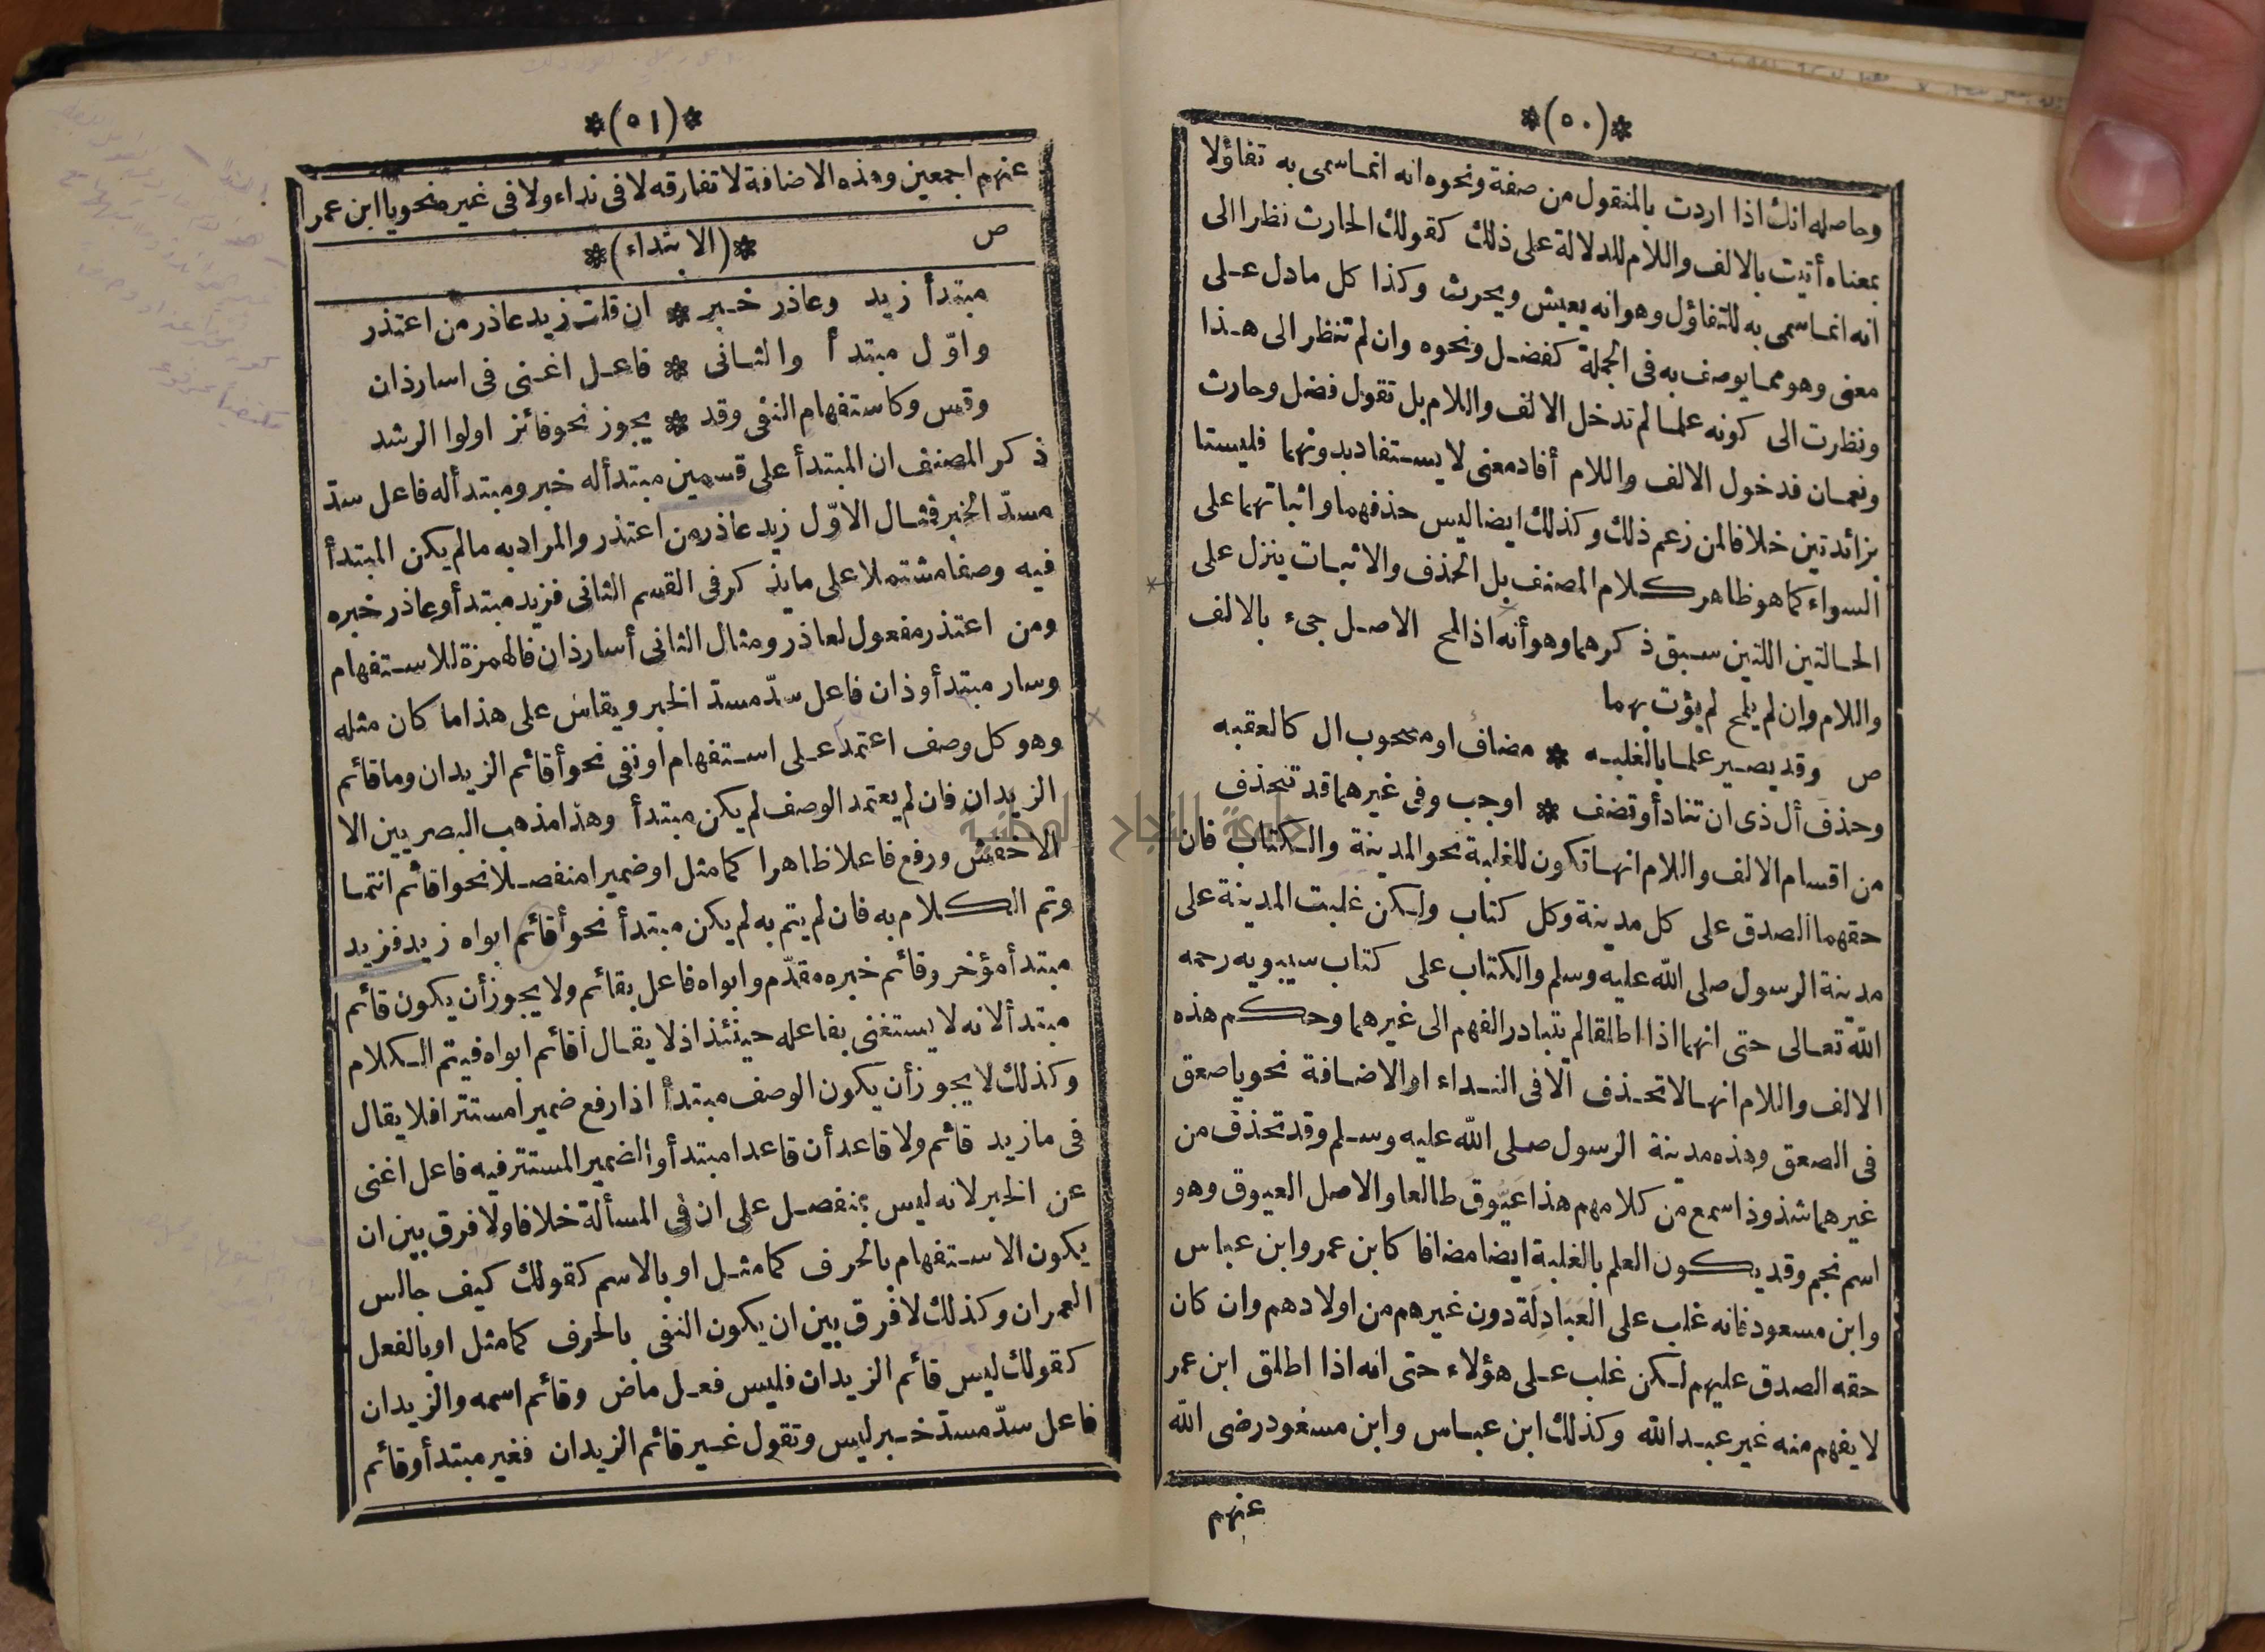 *(٥٠)*
وحاصله انك اذا اردت بالمنقول من صفة ونحوه انه انما سمى به تفاؤلا
بمعناه أتيت بالالف واللام للدلالة على ذلك كقولك الحارث نظرا الى
انه انما سمى به للتفاؤل وهو انه يعيش ويحرث وكذا كل ما دل على
معنى وهو مما يوصف به فى الجملة كفضل ونحوه وان لم تنظر الى هذا
ونظرت الى كونه علما لم تدخل الالف واللام بل تقول فضل وحارث
ونعمان فدخول الالف واللام أفاد معنى لا يستفاد بدونهما فليستا
بزائدتين خلافا لمن زعم ذلك وكذلك ايضا ليس حذفهما واثباتهما على
السواء كما هو ظاهر كلام المصنف بل الحذف والاثبات ينزل على
الحالتين اللتين سبق ذكرهما وهو أنه اذا لمح الاصل جىء بالالف
واللام وان لم يلمح لم يؤت بهما
ص وقد يصير علما بالغلبه * مضاف او مصحوب ال كالعقبه
وحذف أل ذى ان تناد أو تضف * اوجب وفى غيرهما قد تنحذف
من اقسام الالف واللام انها تكون للغلبة نحو المدينة والكتاب فان
حقهما الصدق على كل مدينة وكل كتاب ولكن غلبت المدينة على
مدينة الرسول صلى الله عليه وسلم والكتاب على كتاب سيبويه رحمه
الله تعالى حتى انهما اذا اطلقا لم يتبادر الفهم الى غيرهما وحكم هذه
الالف واللام انها لا تحذف الا فى النداء او الاضافة نحو يا صعق
فى الصعق وهذه مدينة الرسول صلى الله عليه وسلم وقد تحذف من
غيرهما شذوذا سمع من كلامهم هذا عيّوق طالعا والاصل العيوق وهو
اسم نجم وقد يكون العلم بالغلبة ايضا مضافا كابن عمر وابن عباس
وابن مسعود فانه غلب على العبادلة دون غيرهم من اولادهم وان كان
حقه الصدق عليهم لكن غلب على هؤلاء حتى انه اذا اطلق ابن عمر
لا يفهم منه غير عبد الله وكذلك ابن عباس وابن مسعود رضى الله
عنهم
*(٥١)*
عنهم اجمعين وهذه الاضافة لا تفارقه لا فى نداء ولا فى غيره نحو يا ابن عمر
ص *(الابتداء)*
مبتدأ زيد وعاذر خبر * ان قلت زيد عاذر من اعتذر
واوّل مبتدأ والثانى * فاعل اغنى فى اسار ذان
وقس وكاستفهام النفى وقد * يجوز نحو فائز اولوا الرشد
ذكر المصنف ان المبتدأ على قسمين مبتدأ له خبر ومبتدأ له فاعل سدّ
مسدّ الخبر فمثال الاوّل زيد عاذر من اعتذر والمراد به ما لم يكن المبتدأ
فيه وصفا مشتملا على ما يذكر فى القسم الثانى فزيد مبتدأ وعاذر خبره
ومن اعتذر مفعول لعاذر ومثال الثانى أسار ذان فالهمزة للاستفهام
وسار مبتدأ وذان فاعل سدّ مسدّ الخبر ويقاس على هذا ما كان مثله
وهو كل وصف اعتمد على استفهام او نفى نحو أقائم الزيدان وما قائم
الزيدان فان لم يعتمد الوصف لم يكن مبتدأ وهذا مذهب البصريين الا
الاخفش ورفع فاعلا ظاهرا كما مثل او ضميرا منفصلا نحو اقائم انتما
وتم الكلام به فان لم يتم به لم يكن مبتدأ نحو أقائم ابواه زيد فزيد
مبتدأ مؤخر وقائم خبره مقدّم وابواه فاعل بقائم ولا يجوز أن يكون قائم
مبتدأ لانه لا يستغنى بفاعله حينئذ اذ لا يقال أقائم ابواه فيتم الكلام
وكذلك لا يجوز أن يكون الوصف مبتدأ اذا رفع ضميرا مستترا فلا يقال
فى ما زيد قائم ولا قاعد أن قاعدا مبتدأ والضمير المستتر فيه فاعل اغنى
عن الخبر لانه ليس بمنفصل على ان فى المسألة خلافا ولا فرق بين ان
يكون الاستفهام بالحرف كما مثل او بالاسم كقولك كيف جالس
العمران وكذلك لا فرق بين ان يكون النفى بالحرف كما مثل او بالفعل
كقولك ليس قائم الزيدان فليس فعل ماض وقائم اسمه والزيدان
فاعل سدّ مسدّ خبر ليس وتقول غير قائم الزيدان فغير مبتدأ وقائم
جامعة النجاح الوطنية